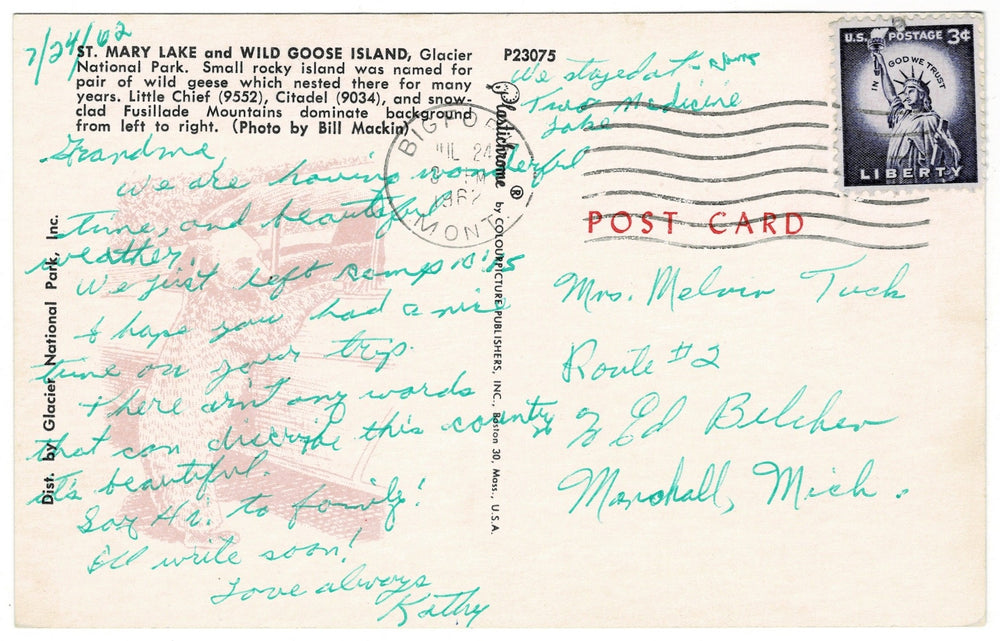 7/24/62
ST. MARY LAKE and WILD GOOSE ISLAND, Glacier
National Park. Small rocky island was named for
pair of wild geese which nested there for many
years. Little Chief (9552), Citadel (9034), and snow-
clad Fusillade Mountains dominate background
from left to right. (Photo by Bill Mackin)
P23075
We stayed at
Two Medicine
Lake
Grandma,
We are having wonderful
time, and beautiful
weather.
We just left camp 10:45
I hope you had a nice
time on your trip.
There arn't any words
that can discribe this country
it's beautiful.
Say Hi. to family!
I'll write soon!
Love always
Kathy
Dist. by Glacier National Park, Inc.
Plastichrome ® by COLOURPICTURE PUBLISHERS, INC., Boston 30, Mass., U.S.A.
BIGFORK
JUL 24
1962
MONT.
U.S. POSTAGE 3¢
IN GOD WE TRUST
LIBERTY
POST CARD
Mrs. Melvin Tuck
Route #2
% Ed Belcher
Marshall, Mich.